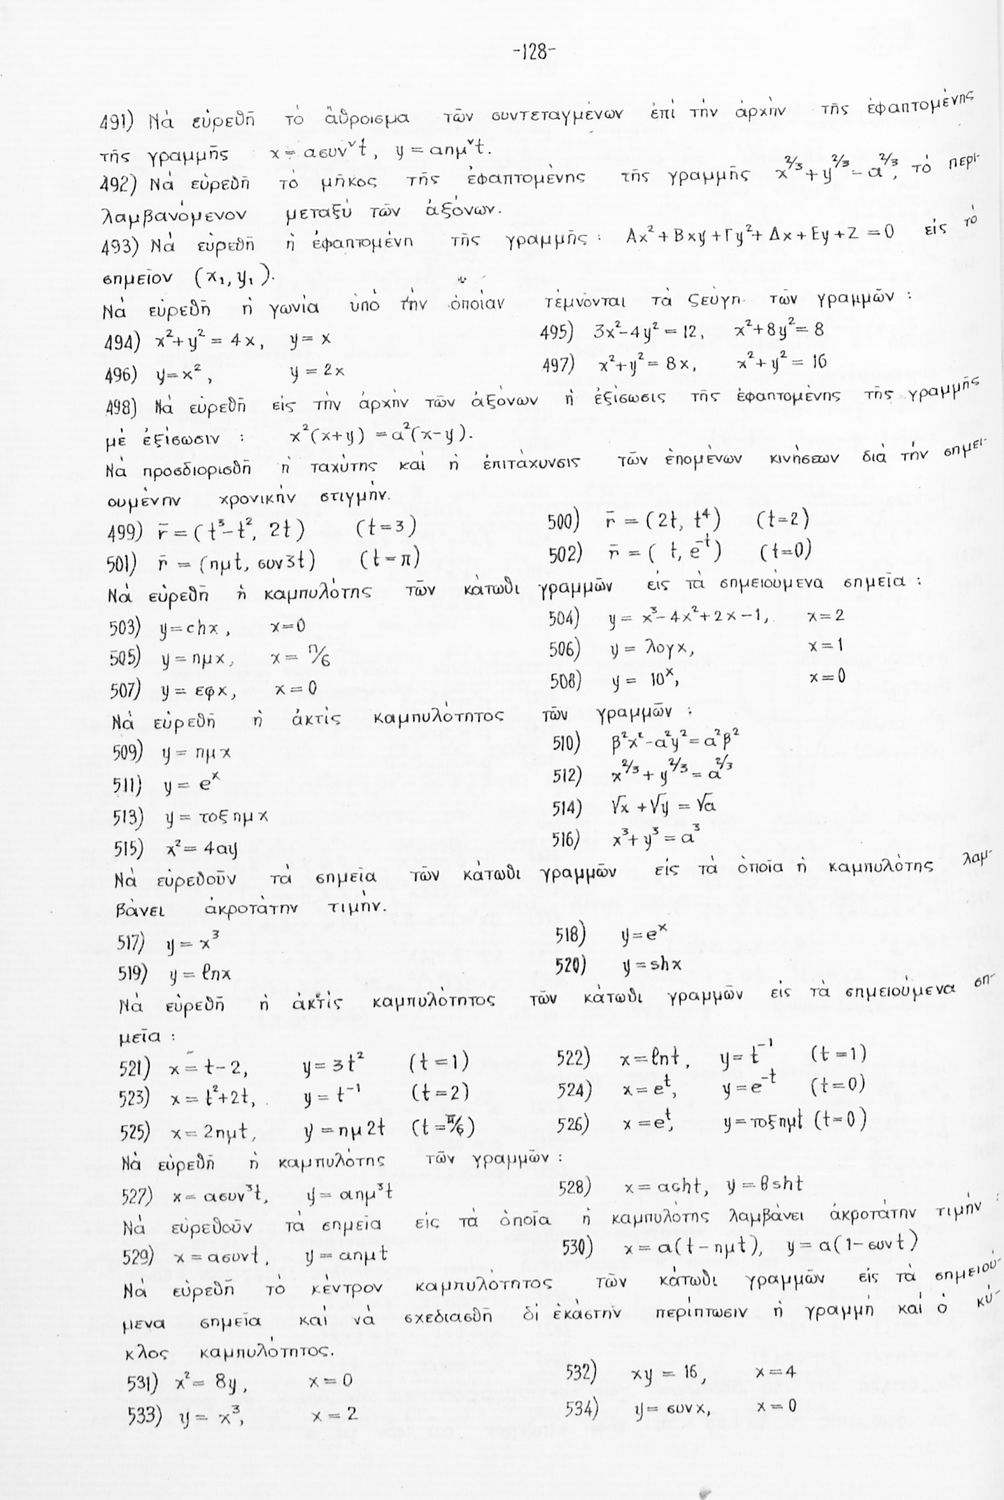 -128-
491) Νά εὑρεθῆ τό ἄθροισμα τῶν συντεταγμένων ἐπί τήν ἀρχήν τῆς ἐφαπτομένης
τῆς γραμμῆς x = ασυνᵛt, y = αημᵛt.
492) Νά εὑρεθῆ τό μῆκος τῆς ἐφαπτομένης τῆς γραμμῆς x^2/3 + y^2/3 = a^2/3, τό περι-
λαμβανόμενον μεταξύ τῶν ἀξόνων.
493) Νά εὑρεθῆ ἡ ἐφαπτομένη τῆς γραμμῆς: Ax²+Bxy+Γy²+Δx+Ey+Z=0 εἰς τό
σημεῖον (x₁, y₁).
Νά εὑρεθῆ ἡ γωνία ὑπό τήν ὁποίαν τέμνονται τά ζεύγη τῶν γραμμῶν:
494) x²+y²=4x, y=x 495) 3x²-4y²=12, x²+8y²=8
496) y=x², y=2x 497) x²+y²=8x, x²+y²=16
498) Νά εὑρεθῆ εἰς τήν ἀρχήν τῶν ἀξόνων ἡ ἐξίσωσις τῆς ἐφαπτομένης τῆς γραμμῆς
μέ ἐξίσωσιν: x²(x+y)=a²(x-y).
Νά προσδιορισθῆ ἡ ταχύτης καί ἡ ἐπιτάχυνσις τῶν ἑπομένων κινήσεων διά τήν σημει-
ουμένην χρονικήν στιγμήν.
499) r̄=(t³-t², 2t) (t=3) 500) r̄=(2t, t⁴) (t=2)
501) r̄=(ημt, συν3t) (t=π) 502) r̄=(t, e^-t) (t=0)
Νά εὑρεθῆ ἡ καμπυλότης τῶν κάτωθι γραμμῶν εἰς τά σημειούμενα σημεῖα:
503) y=chx, x=0 504) y=x³-4x²+2x-1, x=2
505) y=ημx, x=π/6 506) y=λογx, x=1
507) y=εφx, x=0 508) y=10ˣ, x=0
Νά εὑρεθῆ ἡ ἀκτίς καμπυλότητος τῶν γραμμῶν:
509) y=ημx 510) β²x²-α²y²=α²β²
511) y=eˣ 512) x^2/3+y^2/3=a^2/3
513) y=τοξημx 514) √x+√y=√a
515) x²=4ay 516) x³+y³=a³
Νά εὑρεθοῦν τά σημεῖα τῶν κάτωθι γραμμῶν εἰς τά ὁποῖα ἡ καμπυλότης λαμ-
βάνει ἀκροτάτην τιμήν.
517) y=x³ 518) y=eˣ
519) y=ℓnx 520) y=shx
Νά εὑρεθῆ ἡ ἀκτίς καμπυλότητος τῶν κάτωθι γραμμῶν εἰς τά σημειούμενα ση-
μεῖα:
521) x=t-2, y=3t² (t=1) 522) x=ℓnt, y=t⁻¹ (t=1)
523) x=t²+2t, y=t⁻¹ (t=2) 524) x=e^t, y=e^-t (t=0)
525) x=2ημt, y=ημ2t (t=π/6) 526) x=e^t, y=τοξημt (t=0)
Νά εὑρεθῆ ἡ καμπυλότης τῶν γραμμῶν:
527) x=ασυν³t, y=αημ³t 528) x=αcht, y=βsht
Νά εὑρεθοῦν τά σημεῖα εἰς τά ὁποῖα ἡ καμπυλότης λαμβάνει ἀκροτάτην τιμήν:
529) x=ασυνt, y=αημt 530) x=α(t-ημt), y=α(1-συνt)
Νά εὑρεθῆ τό κέντρον καμπυλότητος τῶν κάτωθι γραμμῶν εἰς τά σημειού-
μενα σημεῖα καί νά σχεδιασθῆ δι' ἑκάστην περίπτωσιν ἡ γραμμή καί ὁ κύ-
κλος καμπυλότητος.
531) x²=8y, x=0 532) xy=16, x=4
533) y=x³, x=2 534) y=συνx, x=0